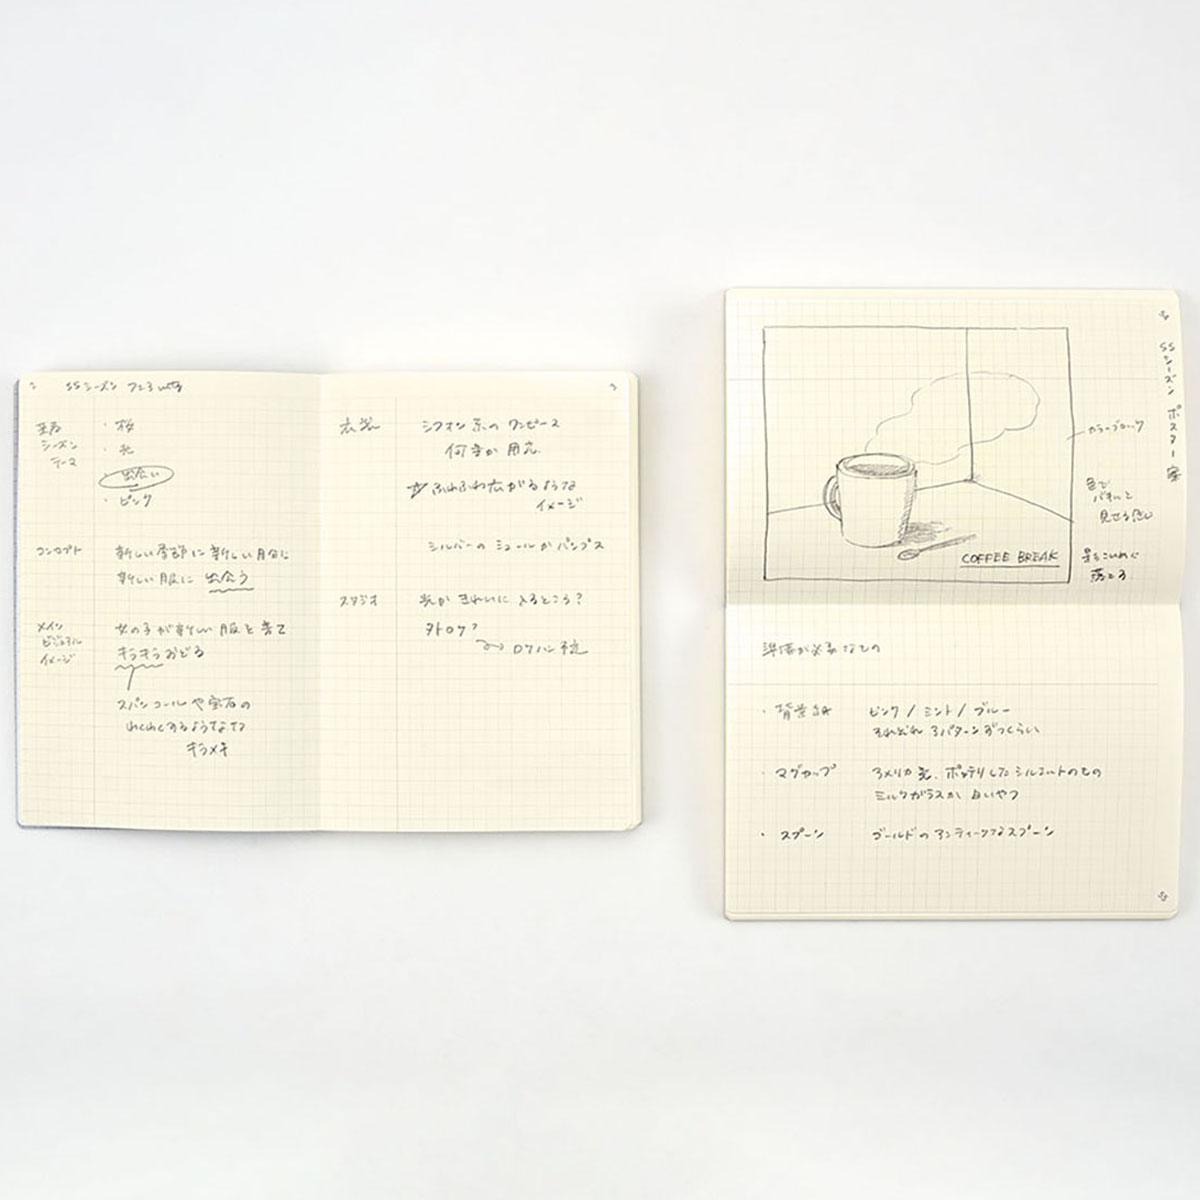 SSシーズン
シーズン
テーマ
・桜
・光
・出会い
・ピンク
コンセプト
新しい季節に新しい自分に
新しい服に 出会う
メイン
ビジュアル
イメージ
女の子が新しい服を着て
キラキラおどる
スパンコールや宝石の
わくわくするような
キラメキ
衣装
シフォン系のワンピース
何着か用意
☆ふわふわ広がるような
イメージ
シルバーのミュールかパンプス
スタジオ
光がきれいに入るところ?
外ロケ?
ロケハン予定
SSシーズン ポスター案
カラーブロック
色で
パキッと
見せる感じ
影をこいめに
落とす
COFFEE BREAK
準備が必要なもの
・背景紙 ピンク / ミント / ブルー
それぞれ3パターンずつくらい
・マグカップ アメリカ製、ポッテリしたシルエットのもの
ミルクガラスか白いやつ
・スプーン ゴールドのアンティークなスプーン